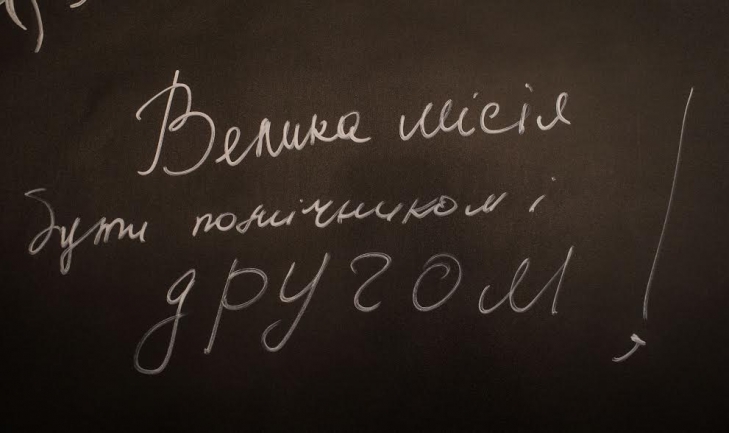 Велика місія
бути помічником і
другом!